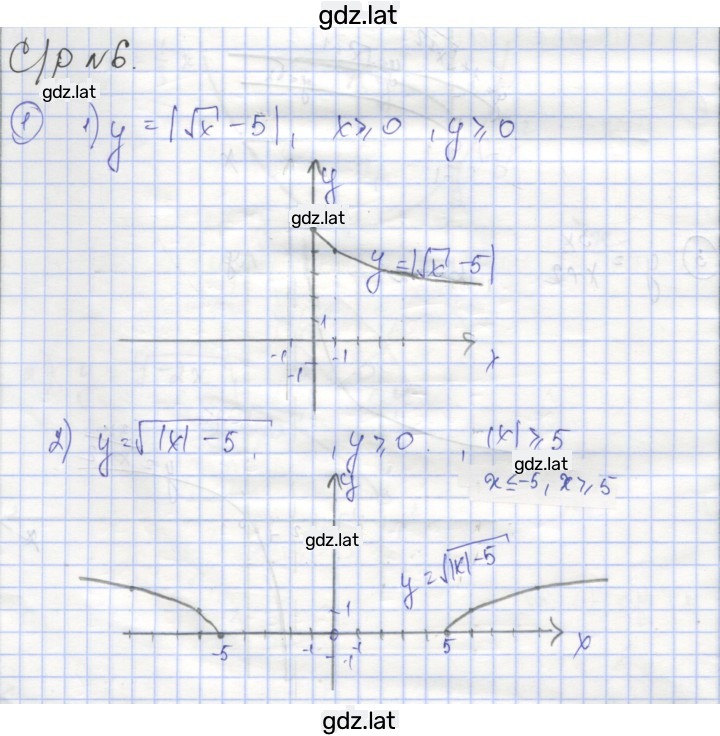 gdz.lat
С/р №6.
gdz.lat
① 1) y = |√x - 5|, x ⩾ 0, y ⩾ 0
y
gdz.lat
y = |√x - 5|
1
-1 1 x
-1
2) y = √|x| - 5, y ⩾ 0, |x| ⩾ 5
gdz.lat
x ≤ -5, x ⩾ 5
y
gdz.lat
y = √|x| - 5
1
-5 -1 0 1 5 x
-1
gdz.lat